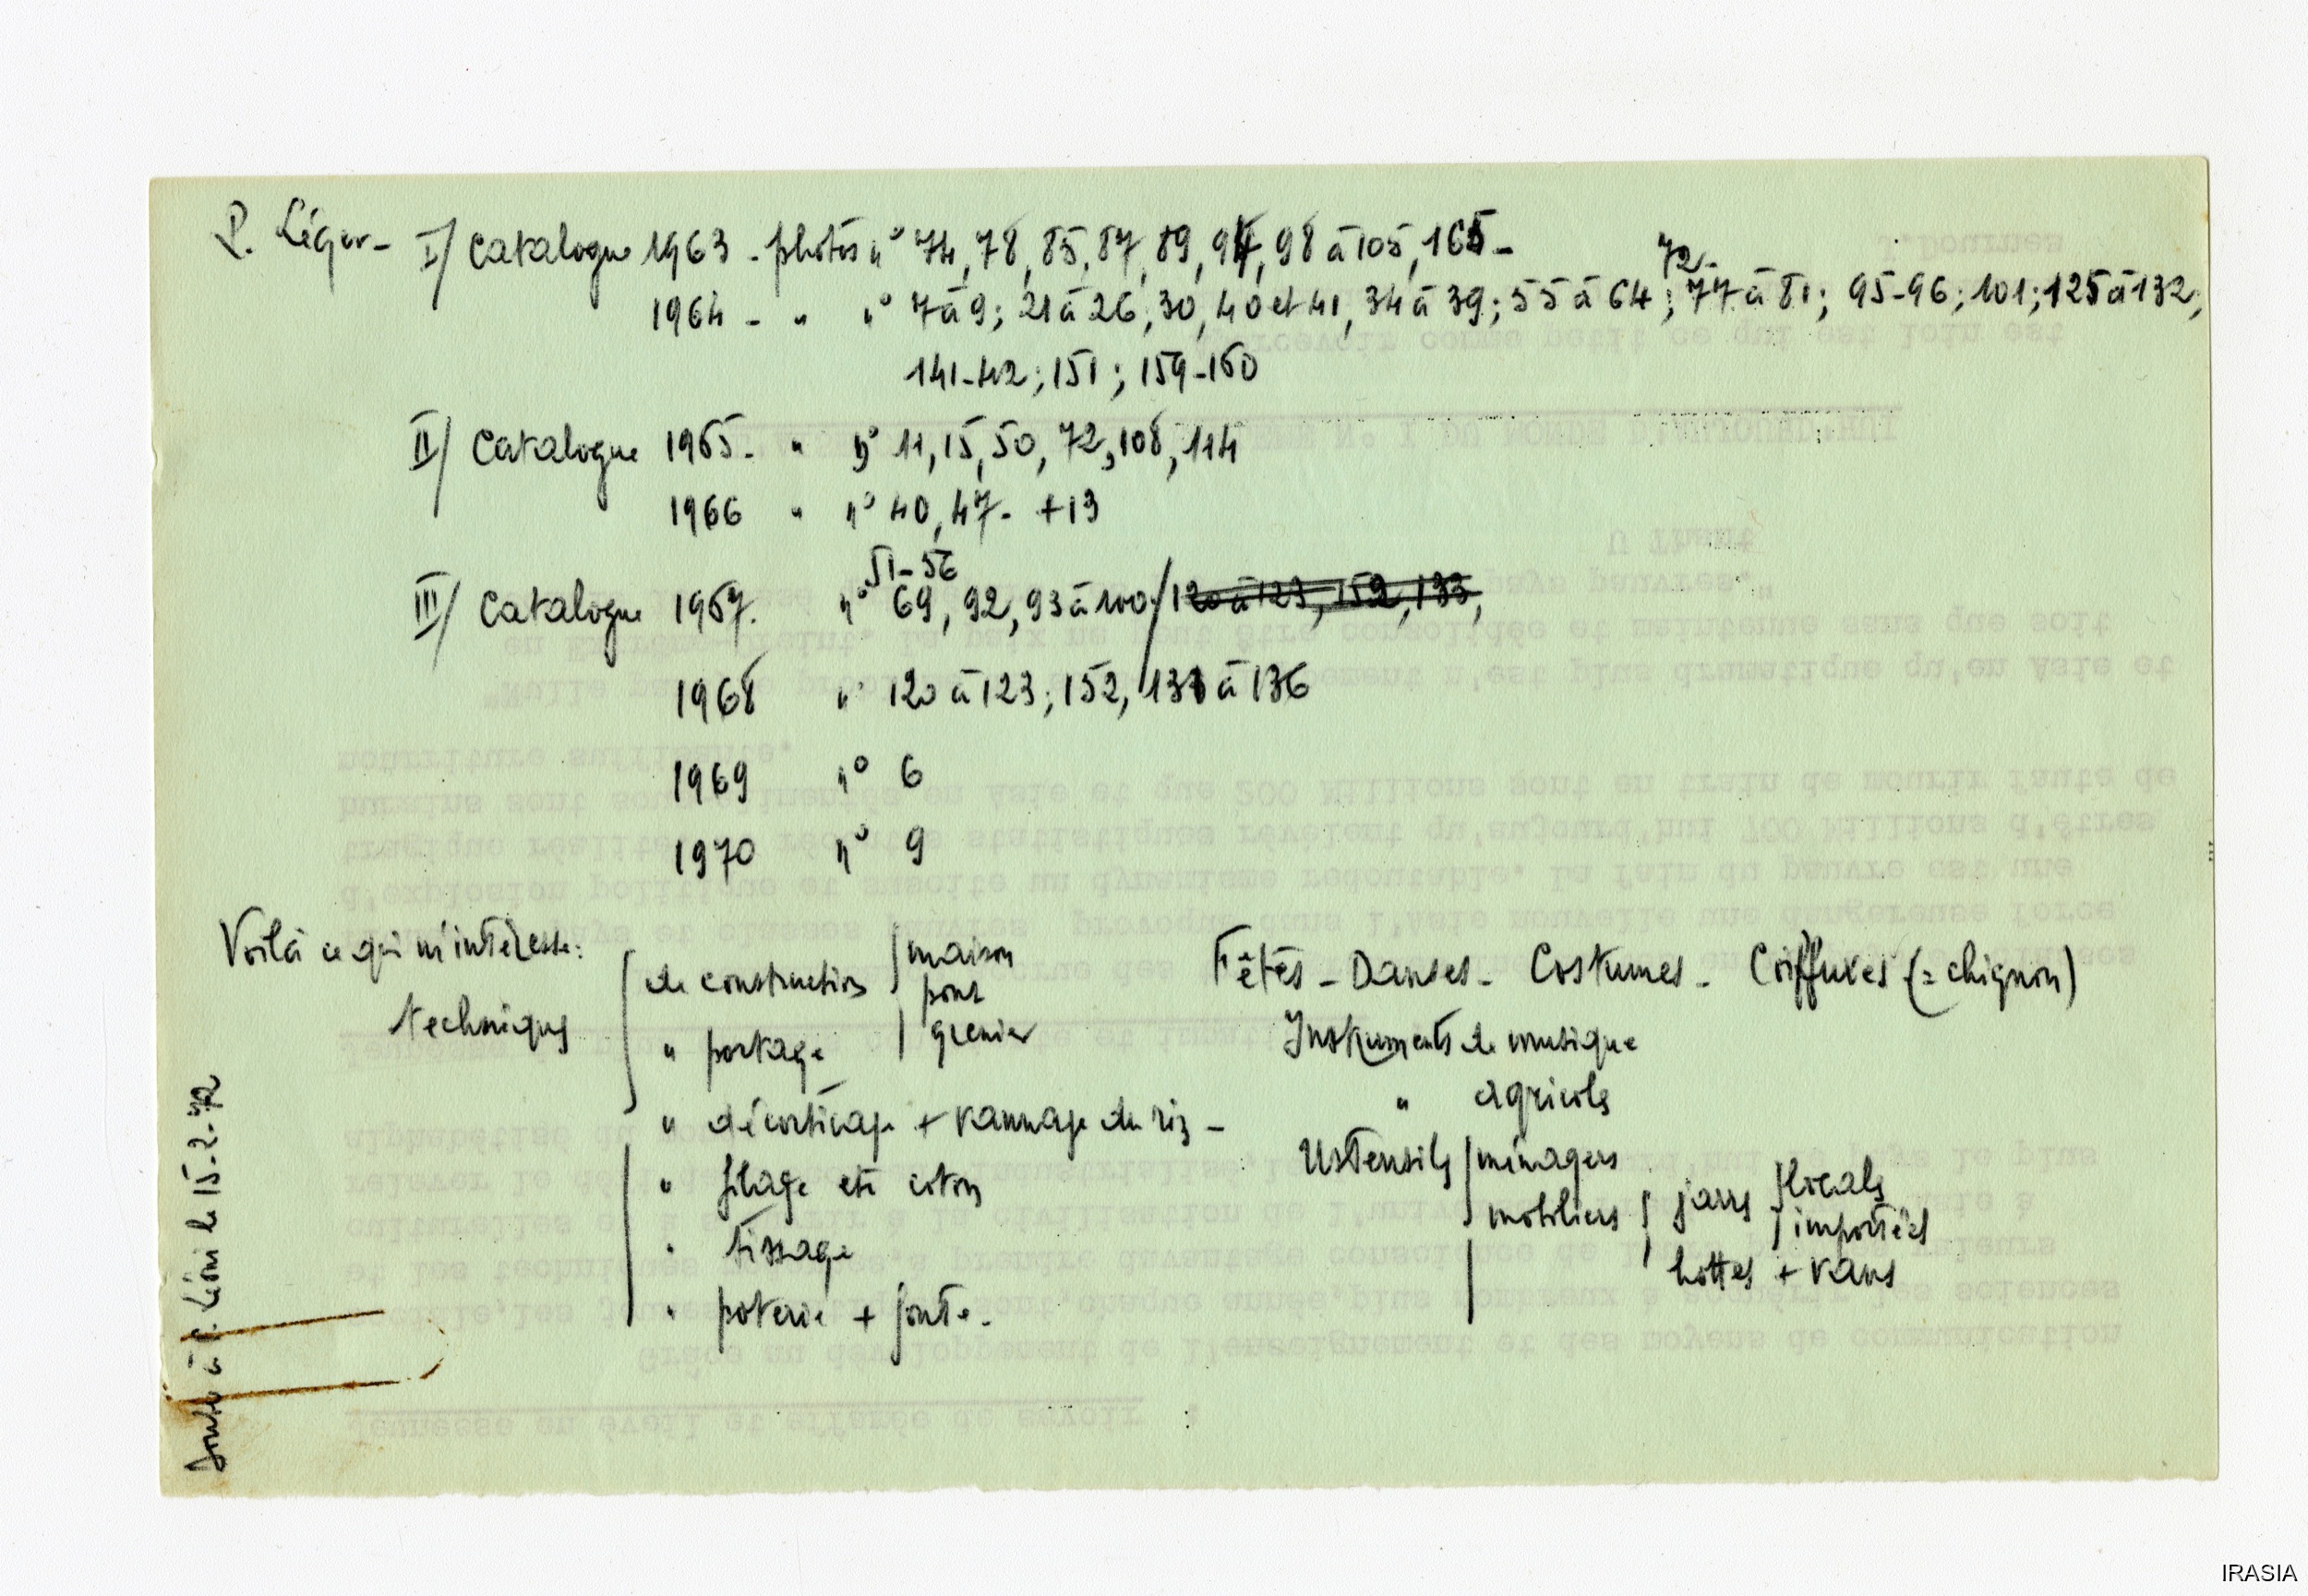 P. Léger - I/ Catalogue 1963 - photos n° 74, 78, 85, 87, 89, 94, 98 à 105, 165 -
72 -
1964 - " n° 7 à 9; 21 à 26, 30, 40 et 41, 34 à 39; 55 à 64; 77 à 81; 95-96; 101; 125 à 132;
141-42; 151; 159-160
II/ Catalogue 1965. " n° 11, 15, 50, 72, 108, 114
1966 " n° 40, 47 - +13
51-56
III/ Catalogue 1967. n° 69, 92, 93 à 100 / 120 à 123, 152, 133,
1968 n° 120 à 123; 152, 133 à 136
1969 n° 6
1970 n° 9
Voilà ce qui m'intéresse:
techniques
de construction
maison
pont
grenier
" portage
" décorticage + vannage du riz -
" filage du coton
" tissage
" poterie + fonte.
Fêtes - Danses - Costumes - Coiffures (= chignon)
Instruments de musique
" agricoles
Ustensiles
ménagers
mobiliers
jarres
locales
importées
hottes + vans
à P. Léoni le 15-2-72
IRASIA